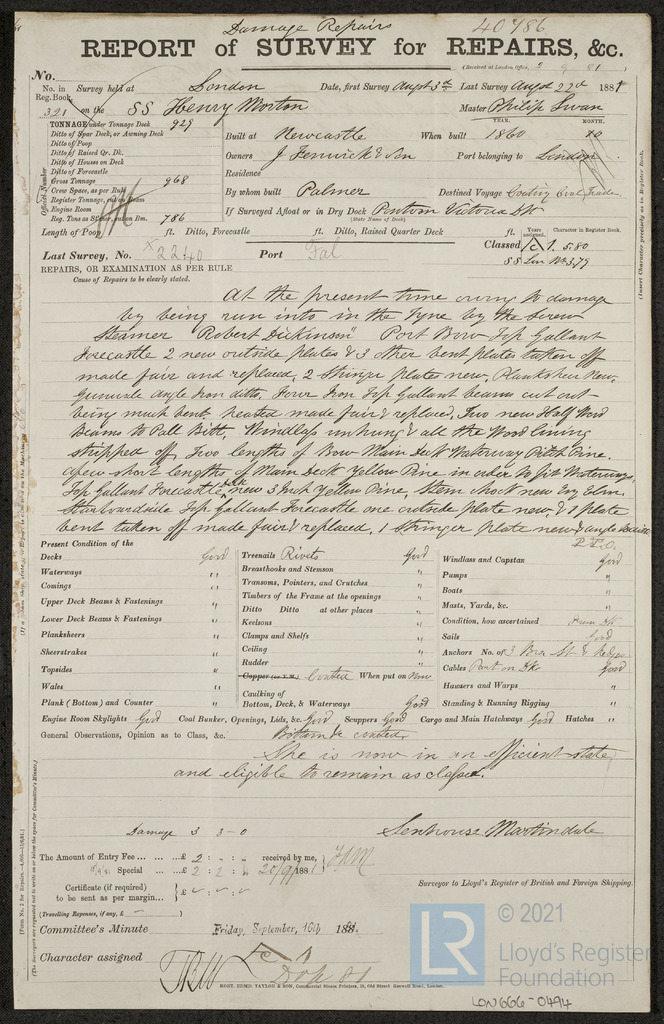 Damage Repairs
40786
REPORT of SURVEY for REPAIRS, &c.
(Received at London Office, 2 9 81)
No.
No. in Reg. Book. Survey held at London Date, first Survey Augst 3rd Last Survey Augst 22d 1881
321 on the SS Henry Morton Master Philip Swan
TONNAGE under Tonnage Deck 929
Ditto of Spar Deck, or Awning Deck
Ditto of Poop
Ditto of Raised Qr. Dk.
Ditto of Houses on Deck
Ditto of Forecastle
Gross Tonnage 968
Crew Space, as per Rule
Register Tonnage,
Engine Room
Reg. Tons as 786
Official Number
YEAR. MONTH.
Built at Newcastle When built 1860 10
Owners J Fenwick & Son Port belonging to London
Residence
By whom built Palmer Destined Voyage Coasting Coal Trade
If Surveyed Afloat or in Dry Dock Pontoon Victoria Dk
(State Name of Dock)
Length of Poop ft. Ditto, Forecastle ft. Ditto, Raised Quarter Deck ft.
Years assigned. Character in Register Book.
Last Survey, No. 2240 Port Fal Classed 1. 5.80
SS Lon No 3,79
(Insert Character precisely as in Register Book.)
REPAIRS, OR EXAMINATION AS PER RULE
Cause of Repairs to be clearly stated.
At the present time owing to damage
by being run into in the Tyne by the Screw
Steamer "Robert Dickinson" Port Bow Top Gallant
Forecastle 2 new outside plates & 3 other bent plates taken off
made fair and replaced, 2 Stringer plate new, Planksheer New,
Gunwale angle Iron ditto, Four Iron Top Gallant beams cut out
being much bent heated made fair & replaced, Two new Half Wood
Beams to Pall Bitt, Windlass unhung & all the Wood lining
stripped off, Two lengths of Bow Main Deck Waterway Pitch Pine.
a few short lengths of Main Deck Yellow Pine in order to fit Waterway,
Top Gallant Forecastle Deck new 3 Inch Yellow Pine, Stem chock new Eng Elm.
Starboardside Top Gallant Forecastle one outside plate new & 1 plate
bent taken off made fair & replaced, 1 Stringer plate new & angle
P.T.O.
Present Condition of the
Decks Good
Waterways "
Comings "
Upper Deck Beams & Fastenings "
Lower Deck Beams & Fastenings "
Planksheers "
Sheerstrakes "
Topsides "
Wales "
Plank (Bottom) and Counter "
Treenails Rivets Good
Breasthooks and Stemson "
Transoms, Pointers, and Crutches "
Timbers of the Frame at the openings "
Ditto Ditto at other places "
Keelsons "
Clamps and Shelfs "
Ceiling "
Rudder "
Copper (or Y.M.) Coated When put on Now
Caulking of Bottom, Deck, & Waterways Good
Windlass and Capstan Good
Pumps "
Boats "
Masts, Yards, &c. "
Condition, how ascertained From Dk
Sails Good
Anchors No. of 3 Bow St & Kedge
Cables Part on Dk Good
Hawsers and Warps "
Standing & Running Rigging "
Engine Room Skylights Good Coal Bunker, Openings, Lids, &c. Good Scuppers Good Cargo and Main Hatchways Good Hatches "
General Observations, Opinion as to Class, &c. Bottom to coated
She is now in an efficient state
and eligible to remain as classed.
Damage 3 3-0
Senhouse Martindale
The Amount of Entry Fee £ 2 : - : received by me,
Special £ 2 : 2 : 20/9/1881
Certificate (if required) to be sent as per margin £
(Travelling Expenses, if any, £ )
Surveyor to Lloyd's Register of British and Foreign Shipping.
Committee's Minute Friday, September, 16th 1881.
Character assigned
ROBT. EDMD. TAYLOR & SON, Commercial Steam Printers, 19, Old Street Goswell Road, London.
LR
© 2021
Lloyd's Register
Foundation
LON666-0494